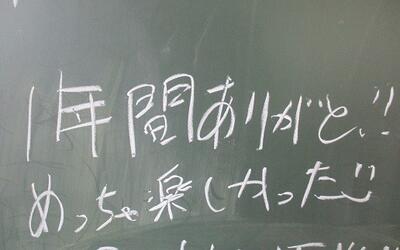 1年間ありがと!!
めっちゃ楽しかった!!